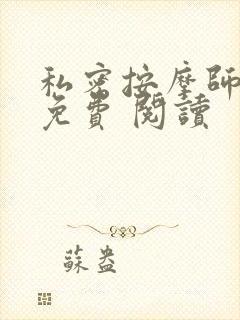 私密按摩師
免費 閱讀
蘇盎